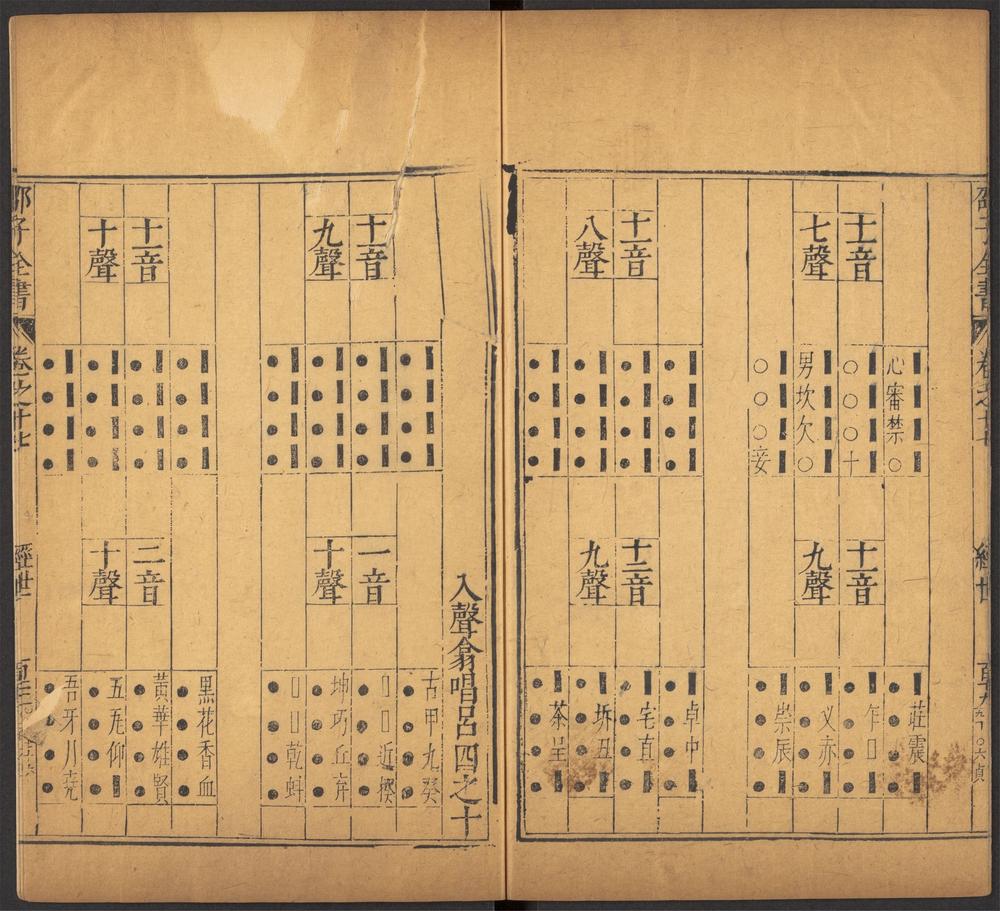 邵子全書
卷之十七
經世
十一音
七聲
心審禁○
○○○十
男坎欠○
○○○妾
十一音
九聲
莊震
乍□
叉赤
崇辰
十一音
八聲
●●●●
●●●●
●●●●
●●●●
十二音
九聲
卓中
宅直
坼丑
茶呈
入聲翕唱呂四之十
十一音
九聲
●●●●
●●●●
●●●●
●●●●
一音
十聲
古甲九癸
□□近揆
坤巧丘弃
□□乾蚪
十一音
十聲
●●●●
●●●●
●●●●
●●●●
二音
十聲
黑花香血
黃華雄賢
五瓦仰□
吾牙月堯
邵子全書
卷之十七
經世